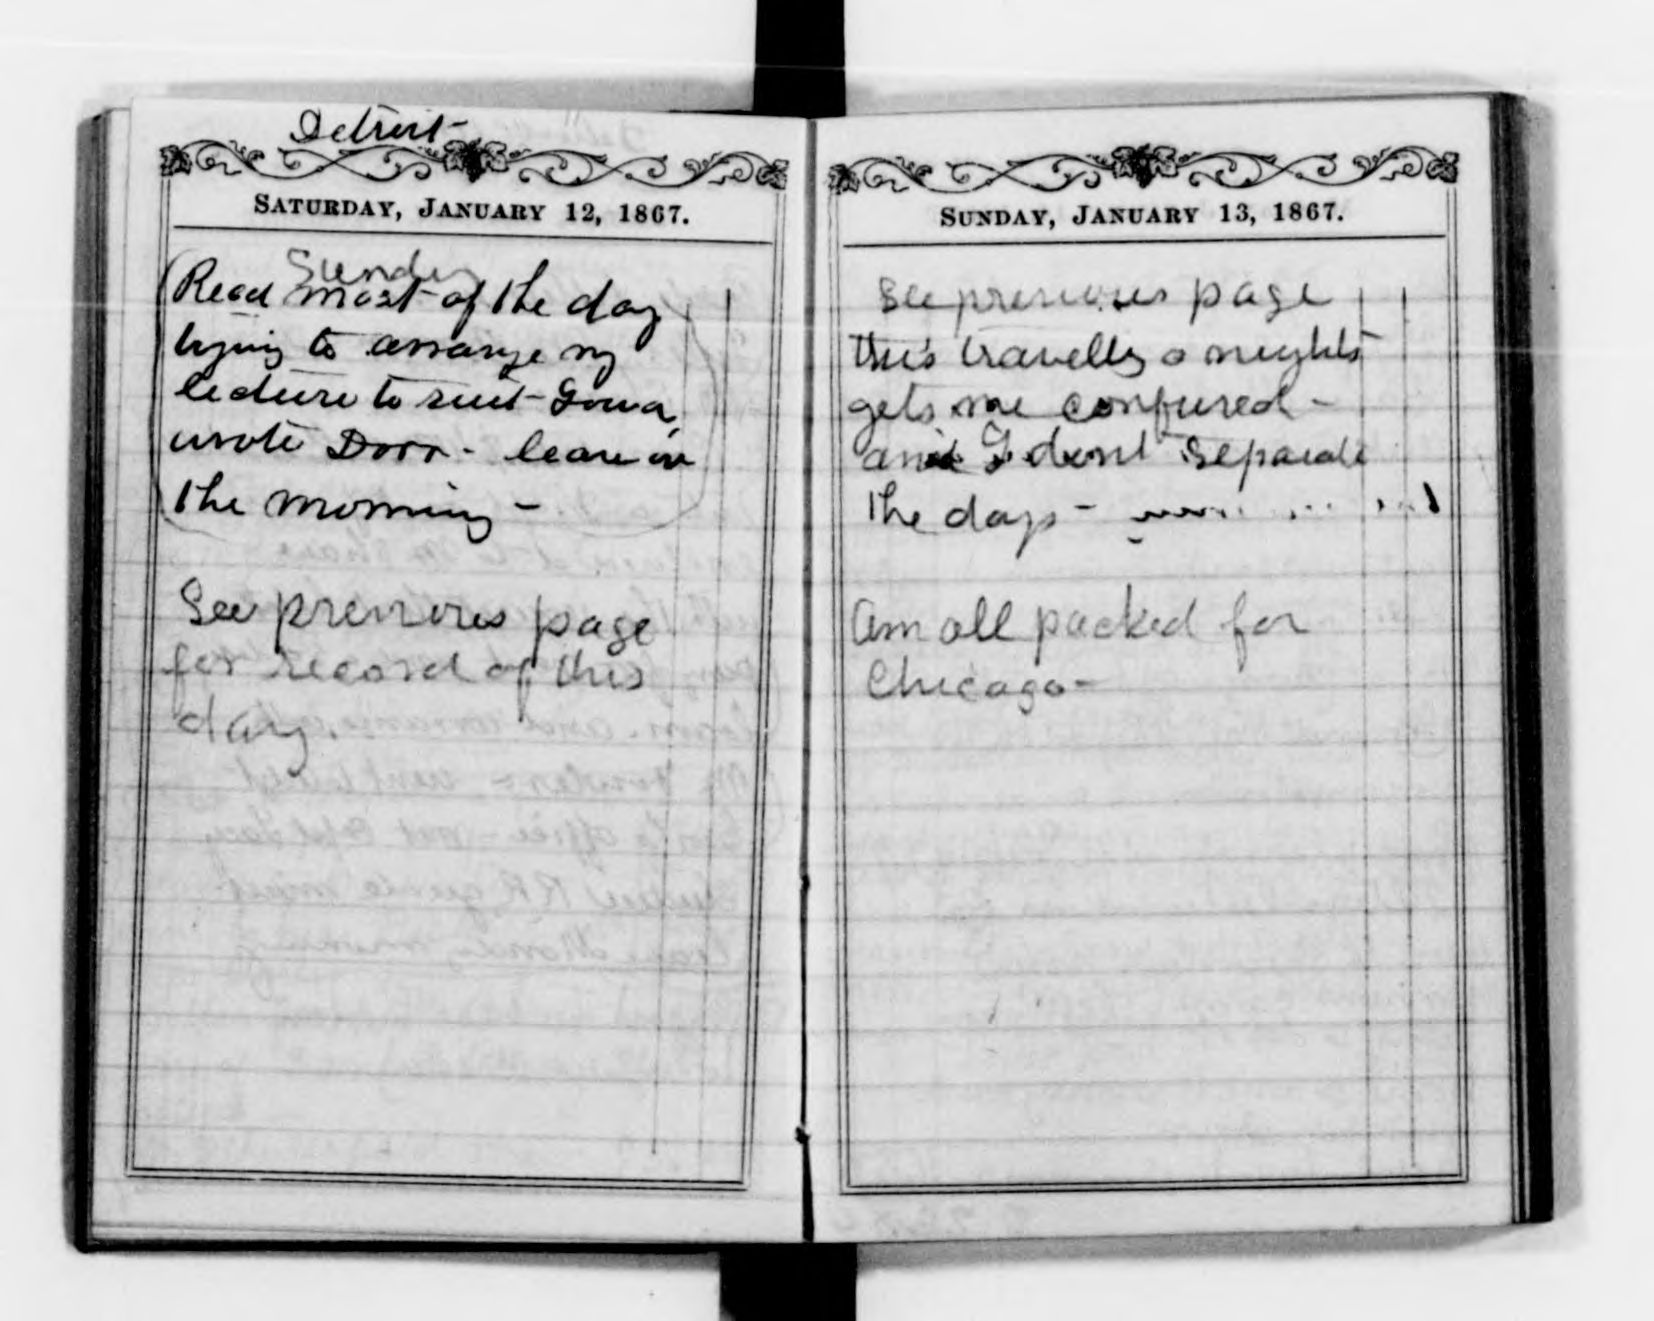 Detroit-
SATURDAY, JANUARY 12, 1867.
Sunday
Read most of the day
trying to arrange my
lecture to suit- Iowa,
wrote Dorr- leave in
the morning-
See previous page
for record of this
day.
SUNDAY, JANUARY 13, 1867.
See previous page
this travelly o nights
gets me confused-
and I dont separate
the days-
Am all packed for
Chicago-